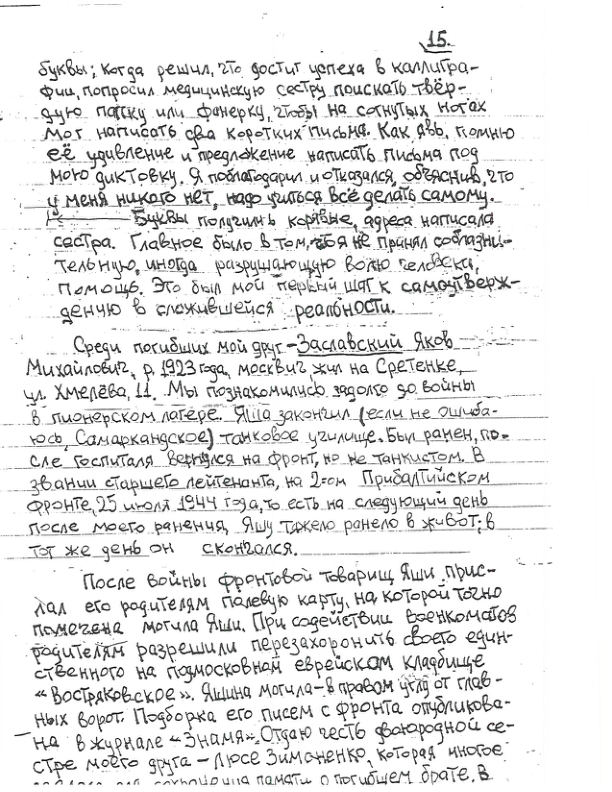 15.
буквы; когда решил, что достиг успеха в каллигра-
фии, попросил медицинскую сестру поискать твёр-
дую папку или фанерку, чтобы на согнутых ногах
мог написать два коротких письма. Как явь, помню
её удивление и предложение написать письма под
мою диктовку. Я поблагодарил и отказался, объяснив, что
у меня никого нет, надо учиться всё делать самому.
Буквы получились корявые, адреса написала
сестра. Главное было в том, что я не принял соблазни-
тельную, иногда разрушающую волю человека,
помощь. Это был мой первый шаг к самоутверж-
дению в сложившейся реальности.
Среди погибших мой друг – Заславский Яков
Михайлович, р. 1923 года, москвич жил на Сретенке,
ул. Хмелёва, 11. Мы познакомились задолго до войны
в пионерском лагере. Яша закончил (если не ошиба-
юсь, Самаркандское) танковое училище. Был ранен, по-
сле госпиталя вернулся на фронт, но не танкистом. В
звании старшего лейтенанта, на 2-ом Прибалтийском
фронте, 25 июля 1944 года, то есть на следующий день
после моего ранения, Яшу тяжело ранело в живот; в
тот же день он скончался.
После войны фронтовой товарищ Яши прис-
лал его родителям палевую карту, на которой точно
помечена могила Яши. При содействии военкоматов
родителям разрешили перезахоронить своего един-
ственного на подмосковном еврейском кладбище
«Востряковское». Яшина могила – в правом углу от глав-
ных ворот. Подборка его писем с фронта опубликова-
на в журнале «Знамя». Отдаю честь двоюродной се-
стре моего друга – Люсе Зимоненко, которая многое
сделала для сохранения памяти о погибшем брате. В